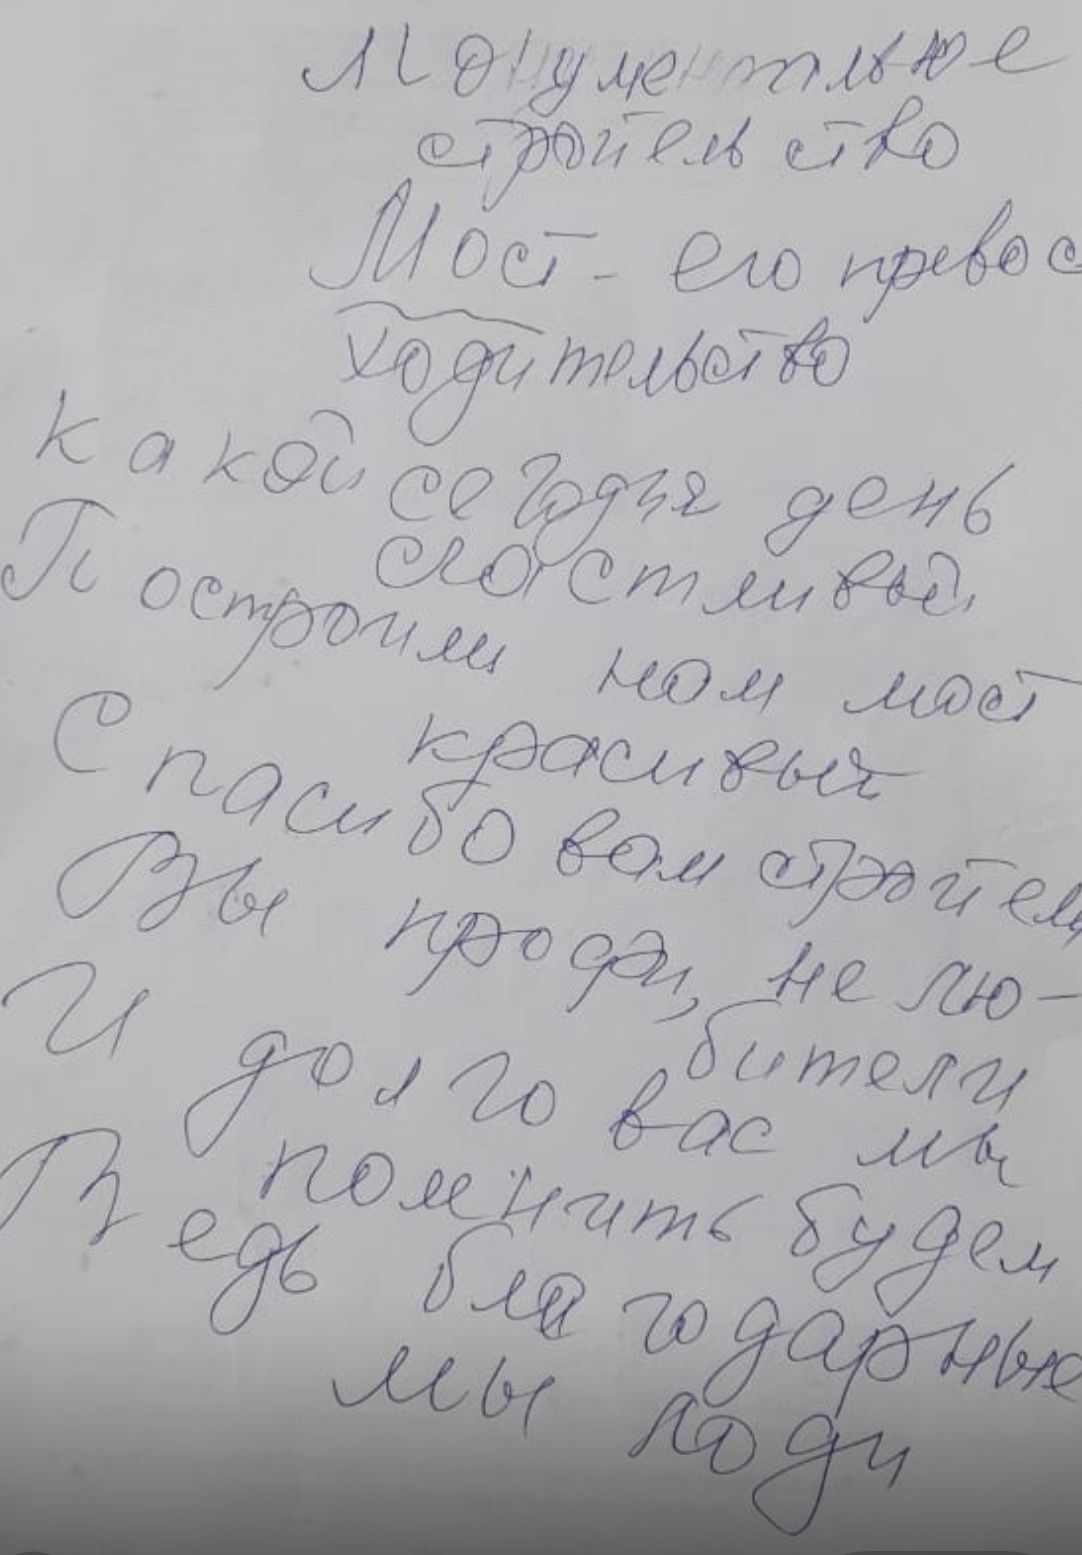 Монументальное
строительство
Мост - его превос
ходительство
Какой сегодня день
счастливый
Построили нам мост
красивый
Спасибо вам строител
Вы профи, не лю-
бители
И долго вас мы
помнить будем
Ведь благодарные
мы люди